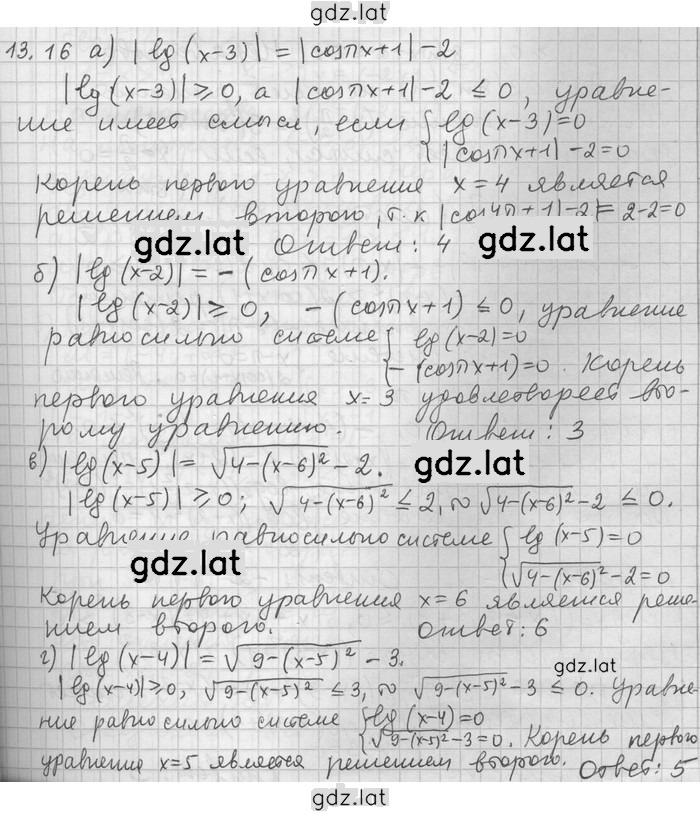 gdz.lat
13.16 а) |lg(x-3)| = |cosπx+1|-2
|lg(x-3)|≥0, а |cosπx+1|-2 ≤ 0, уравне-
ние имеет смысл, если { lg(x-3)=0
|cosπx+1|-2=0
Корень первого уравнения x=4 является
решением второго, т.к |cos4π+1|-2|= 2-2=0
gdz.lat Ответ: 4 gdz.lat
б) |lg(x-2)| = -(cosπx+1).
|lg(x-2)|≥0, -(cosπx+1) ≤0, уравнение
равносильно системе { lg(x-2)=0
-(cosπx+1)=0. Корень
первого уравнения x=3 удовлетворяет вто-
рому уравнению. Ответ: 3
в) |lg(x-5)| = √4-(x-6)² - 2. gdz.lat
|lg(x-5)|≥0; √4-(x-6)² ≤ 2, то √4-(x-6)²-2 ≤ 0.
Уравнение равносильно системе { lg(x-5)=0
gdz.lat √4-(x-6)²-2=0
Корень первого уравнения x=6 является реше-
нием второго. Ответ: 6
г) |lg(x-4)| = √9-(x-5)² - 3. gdz.lat
|lg(x-4)|≥0, √9-(x-5)² ≤3, то √9-(x-5)²-3 ≤ 0. Уравне-
ние равносильно системе { lg(x-4)=0
√9-(x-5)²-3=0. Корень первого
уравнения x=5 является решением второго. Ответ: 5
gdz.lat